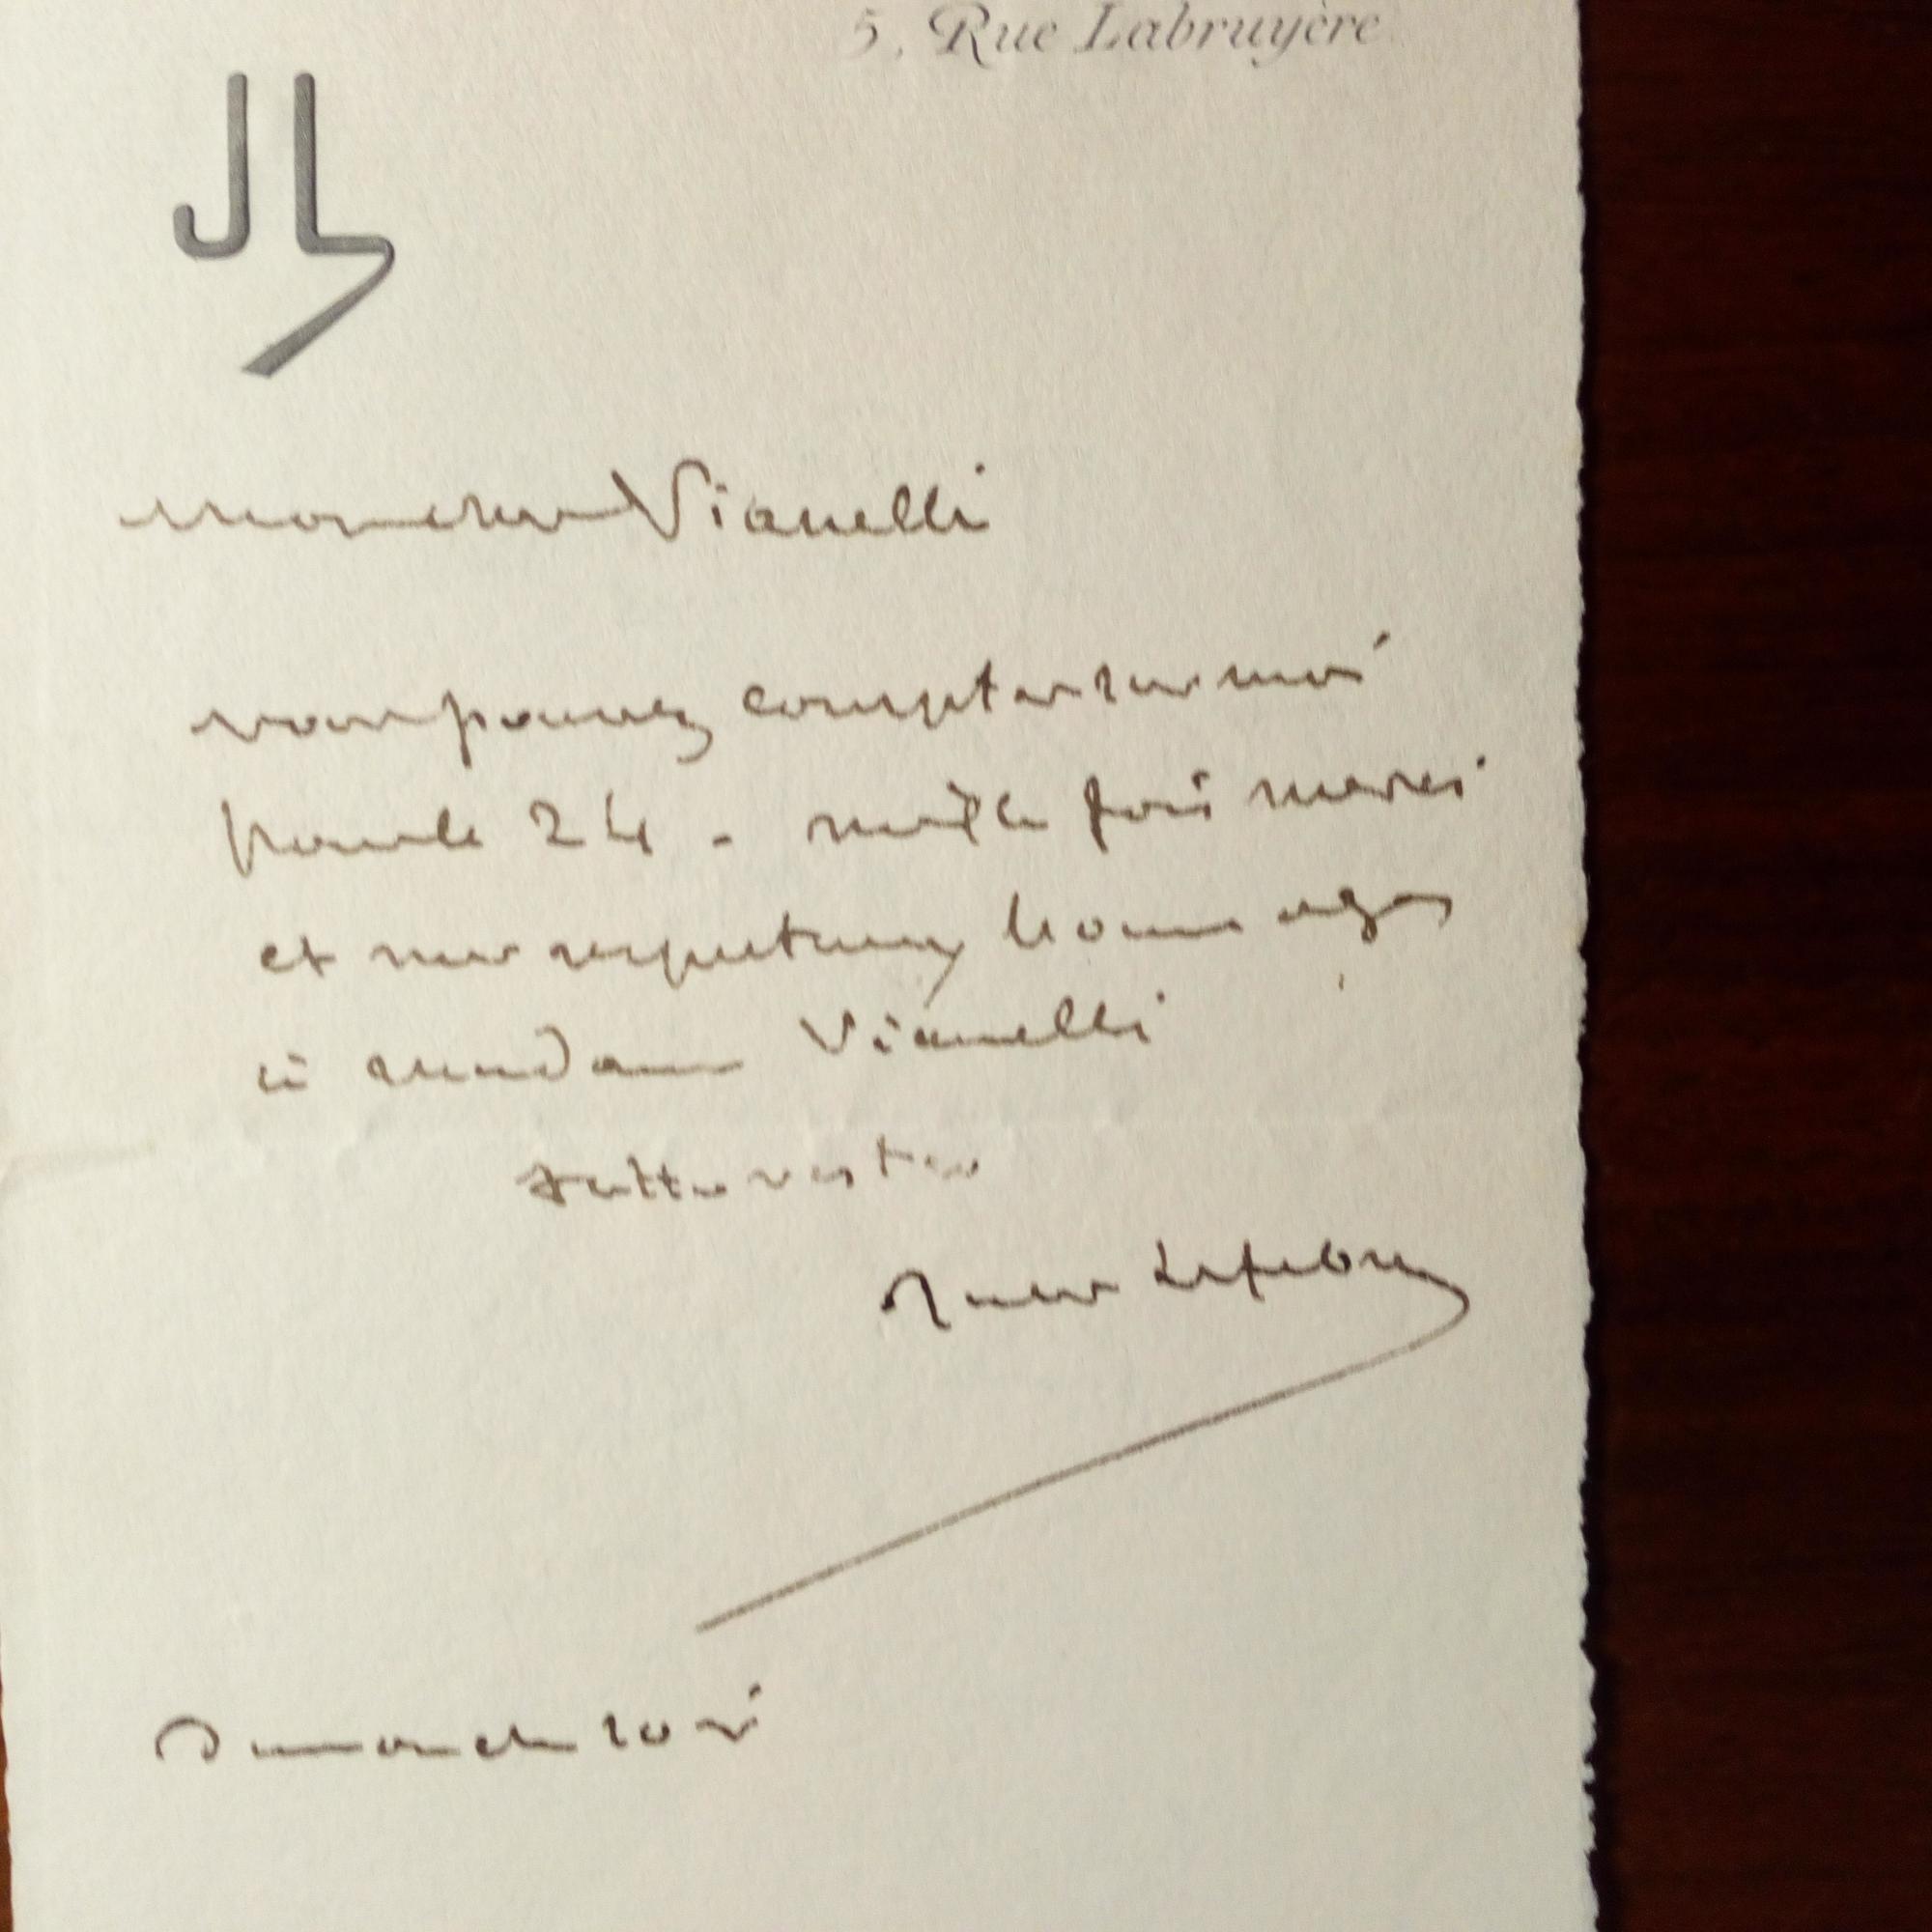 5, Rue Labruyère
JL
Mon cher Vianelli
vous pouvez compter sur moi
pour le 24 - mille fois merci
et mes respectueux hommages
à madame Vianelli
Jules Lefebvre
Dimanche soir